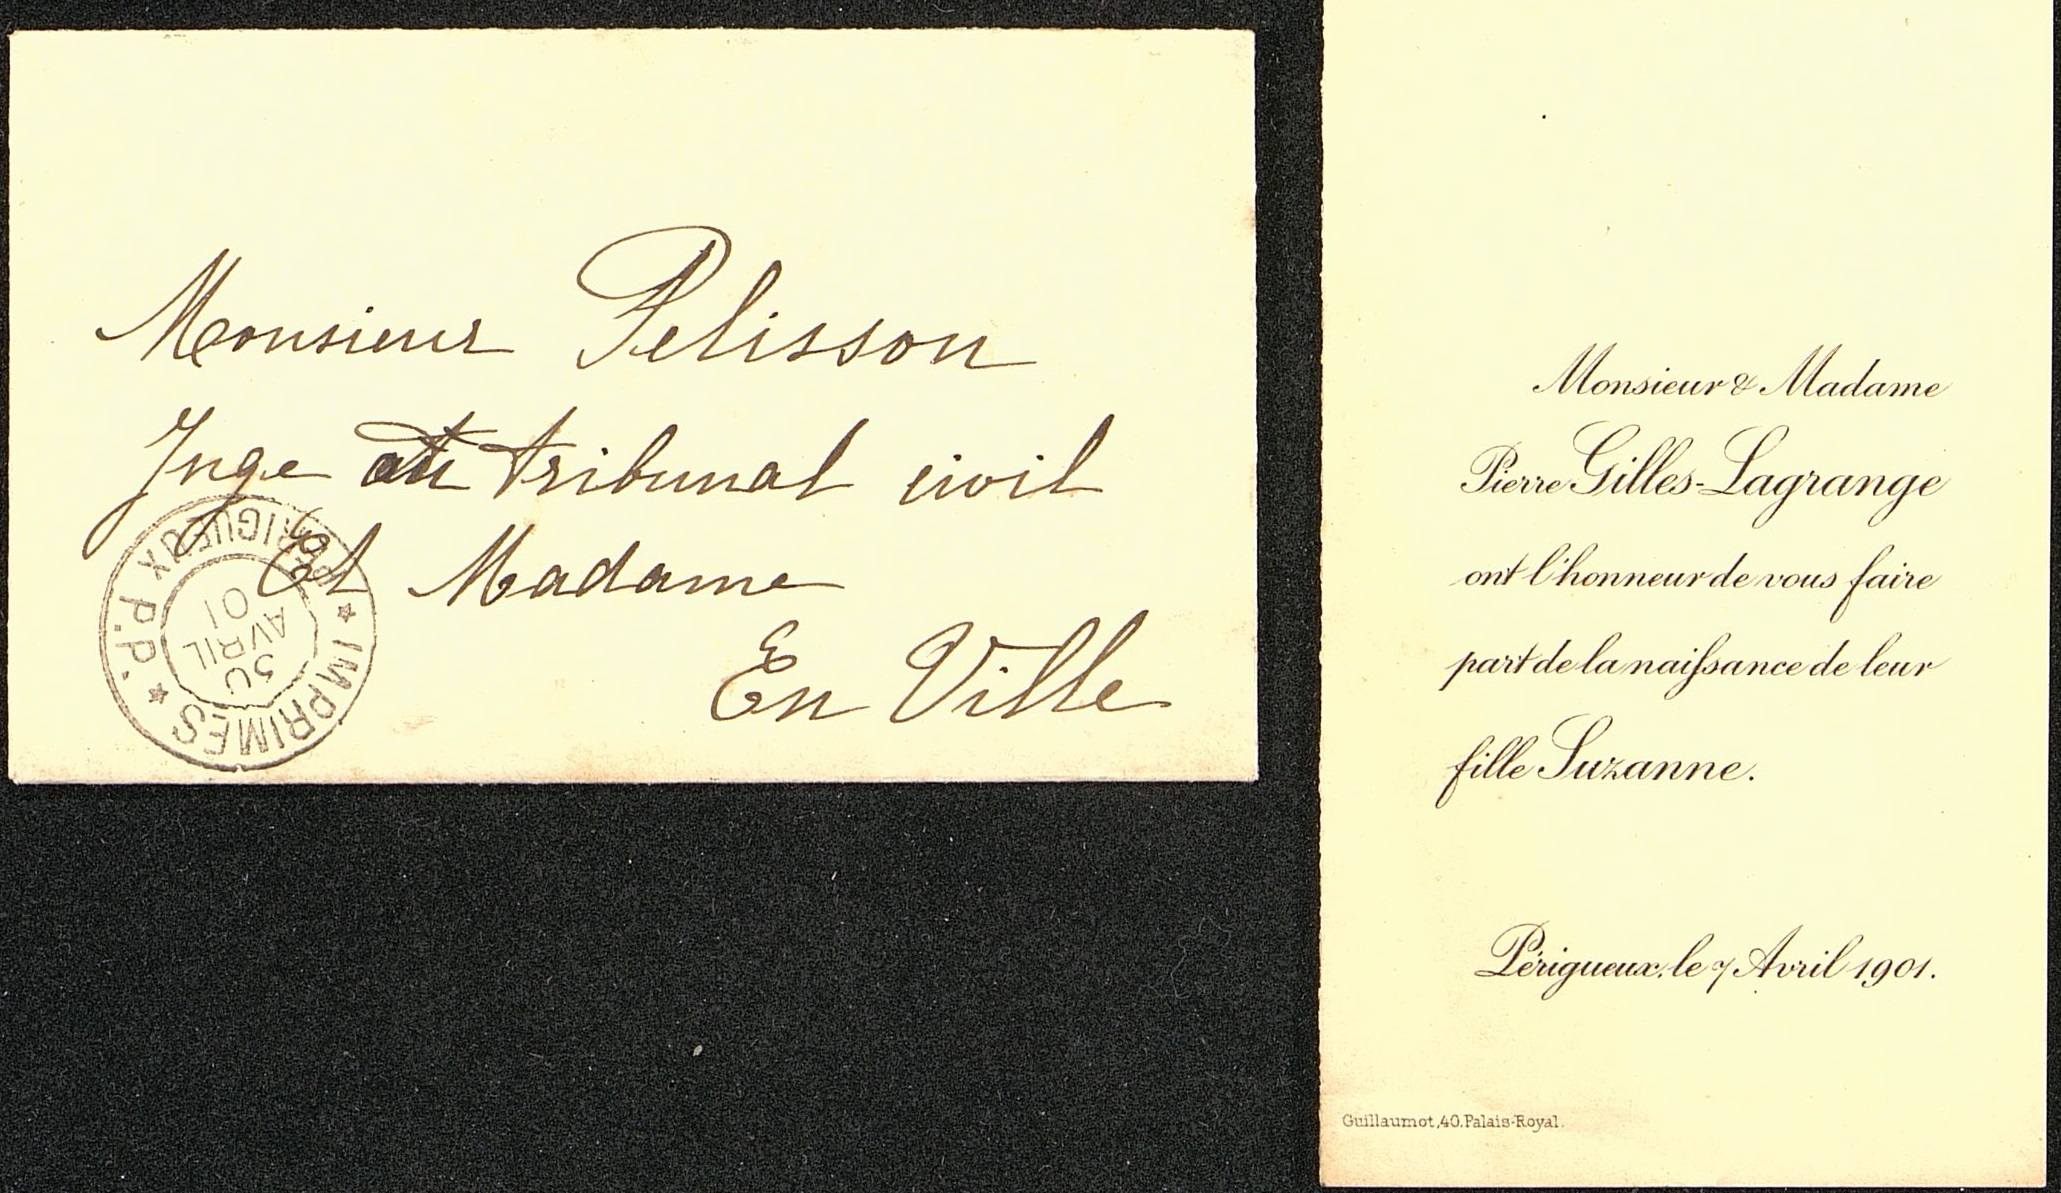 Monsieur Pelisson
Juge au tribunal civil
Et Madame
En Ville
PÉRIGUEUX P.P.
* IMPRIMÉS *
30
AVRIL
01
Monsieur & Madame
Pierre Gilles-Lagrange
ont l'honneur de vous faire
part de la naiſsance de leur
fille Suzanne.
Périgueux, le 7 Avril 1901.
Guillaumot, 40, Palais-Royal.